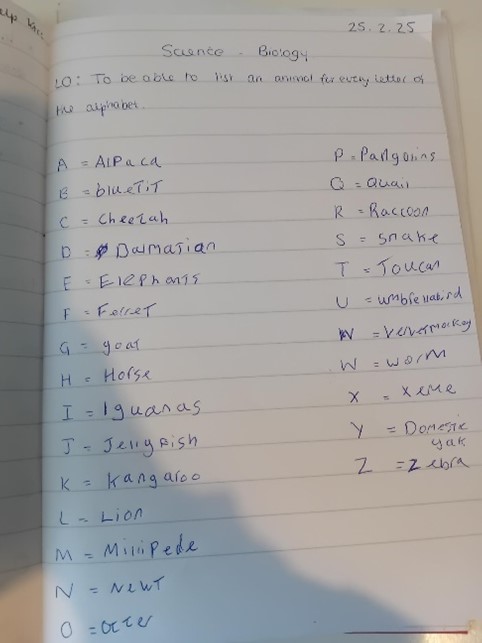 25.2.25
Science - Biology
LO: To be able to list an animal for every letter of
the alphabet.
A = Alpaca
B = blueTiT
C = Cheetah
D = Dalmatian
E = Elephants
F = Ferret
G = goat
H = Horse
I = Iguanas
J = Jellyfish
K = Kangaroo
L = Lion
M = Millipede
N = Newt
O = otter
P = Pangolins
Q = Quail
R = Raccoon
S = snake
T = Toucan
U = umbrellabird
V = vervetmonkey
W = worm
X = xeme
Y = Domestic
yak
Z = Zebra